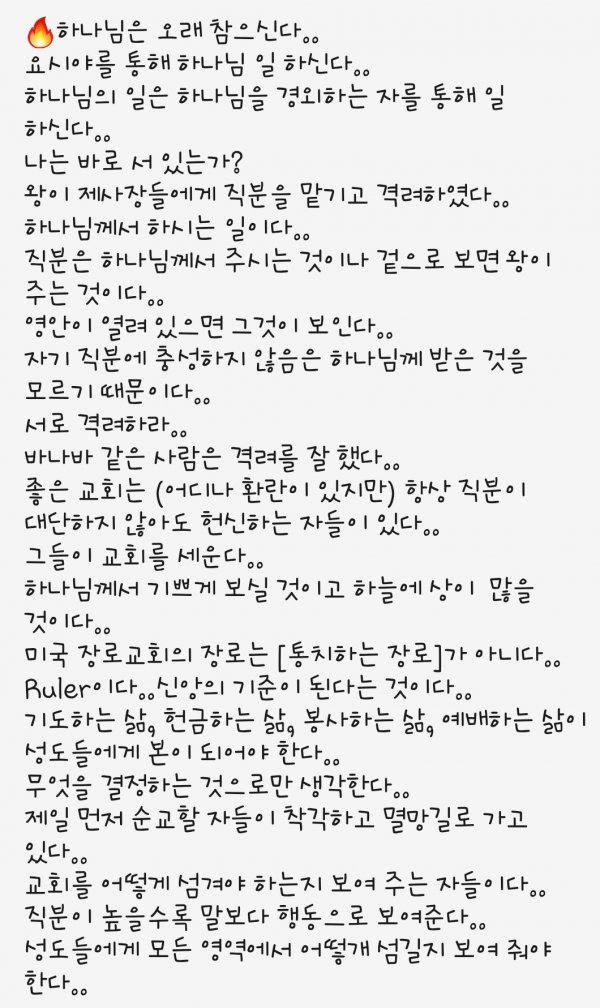 🔥하나님은 오래 참으신다..
요시야를 통해 하나님 일 하신다..
하나님의 일은 하나님을 경외하는 자를 통해 일
하신다..
나는 바로 서 있는가?
왕이 제사장들에게 직분을 맡기고 격려하였다..
하나님께서 하시는 일이다..
직분은 하나님께서 주시는 것이나 겉으로 보면 왕이
주는 것이다..
영안이 열려 있으면 그것이 보인다..
자기 직분에 충성하지 않음은 하나님께 받은 것을
모르기 때문이다..
서로 격려하라..
바나바 같은 사람은 격려를 잘 했다..
좋은 교회는 (어디나 환란이 있지만) 항상 직분이
대단하지 않아도 헌신하는 자들이 있다..
그들이 교회를 세운다..
하나님께서 기쁘게 보실 것이고 하늘에 상이 많을
것이다..
미국 장로교회의 장로는 [통치하는 장로]가 아니다..
Ruler이다..신앙의 기준이 된다는 것이다..
기도하는 삶, 헌금하는 삶, 봉사하는 삶, 예배하는 삶이
성도들에게 본이 되어야 한다..
무엇을 결정하는 것으로만 생각한다..
제일 먼저 순교할 자들이 착각하고 멸망길로 가고
있다..
교회를 어떻게 섬겨야 하는지 보여 주는 자들이다..
직분이 높을수록 말보다 행동으로 보여준다..
성도들에게 모든 영역에서 어떻개 섬길지 보여 줘야
한다..